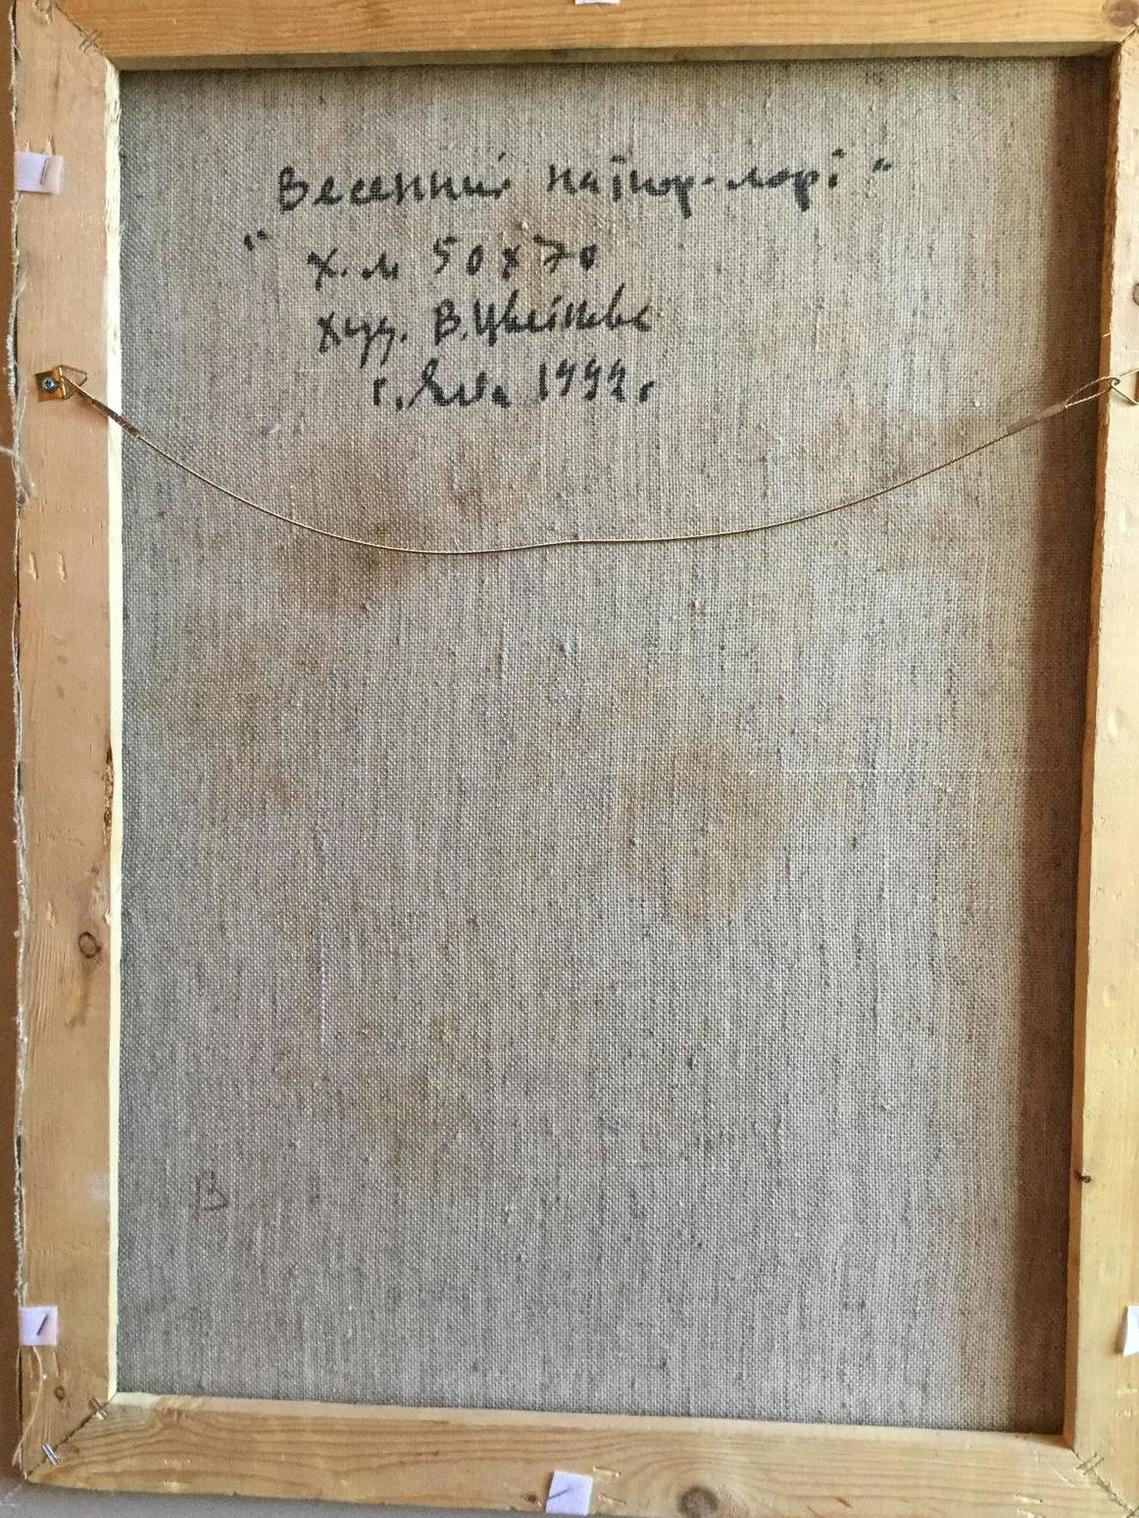 "Весенний натюр-морт"
х.м 50х70
худ. В. Цветкова
г. Ялта 1999г
В